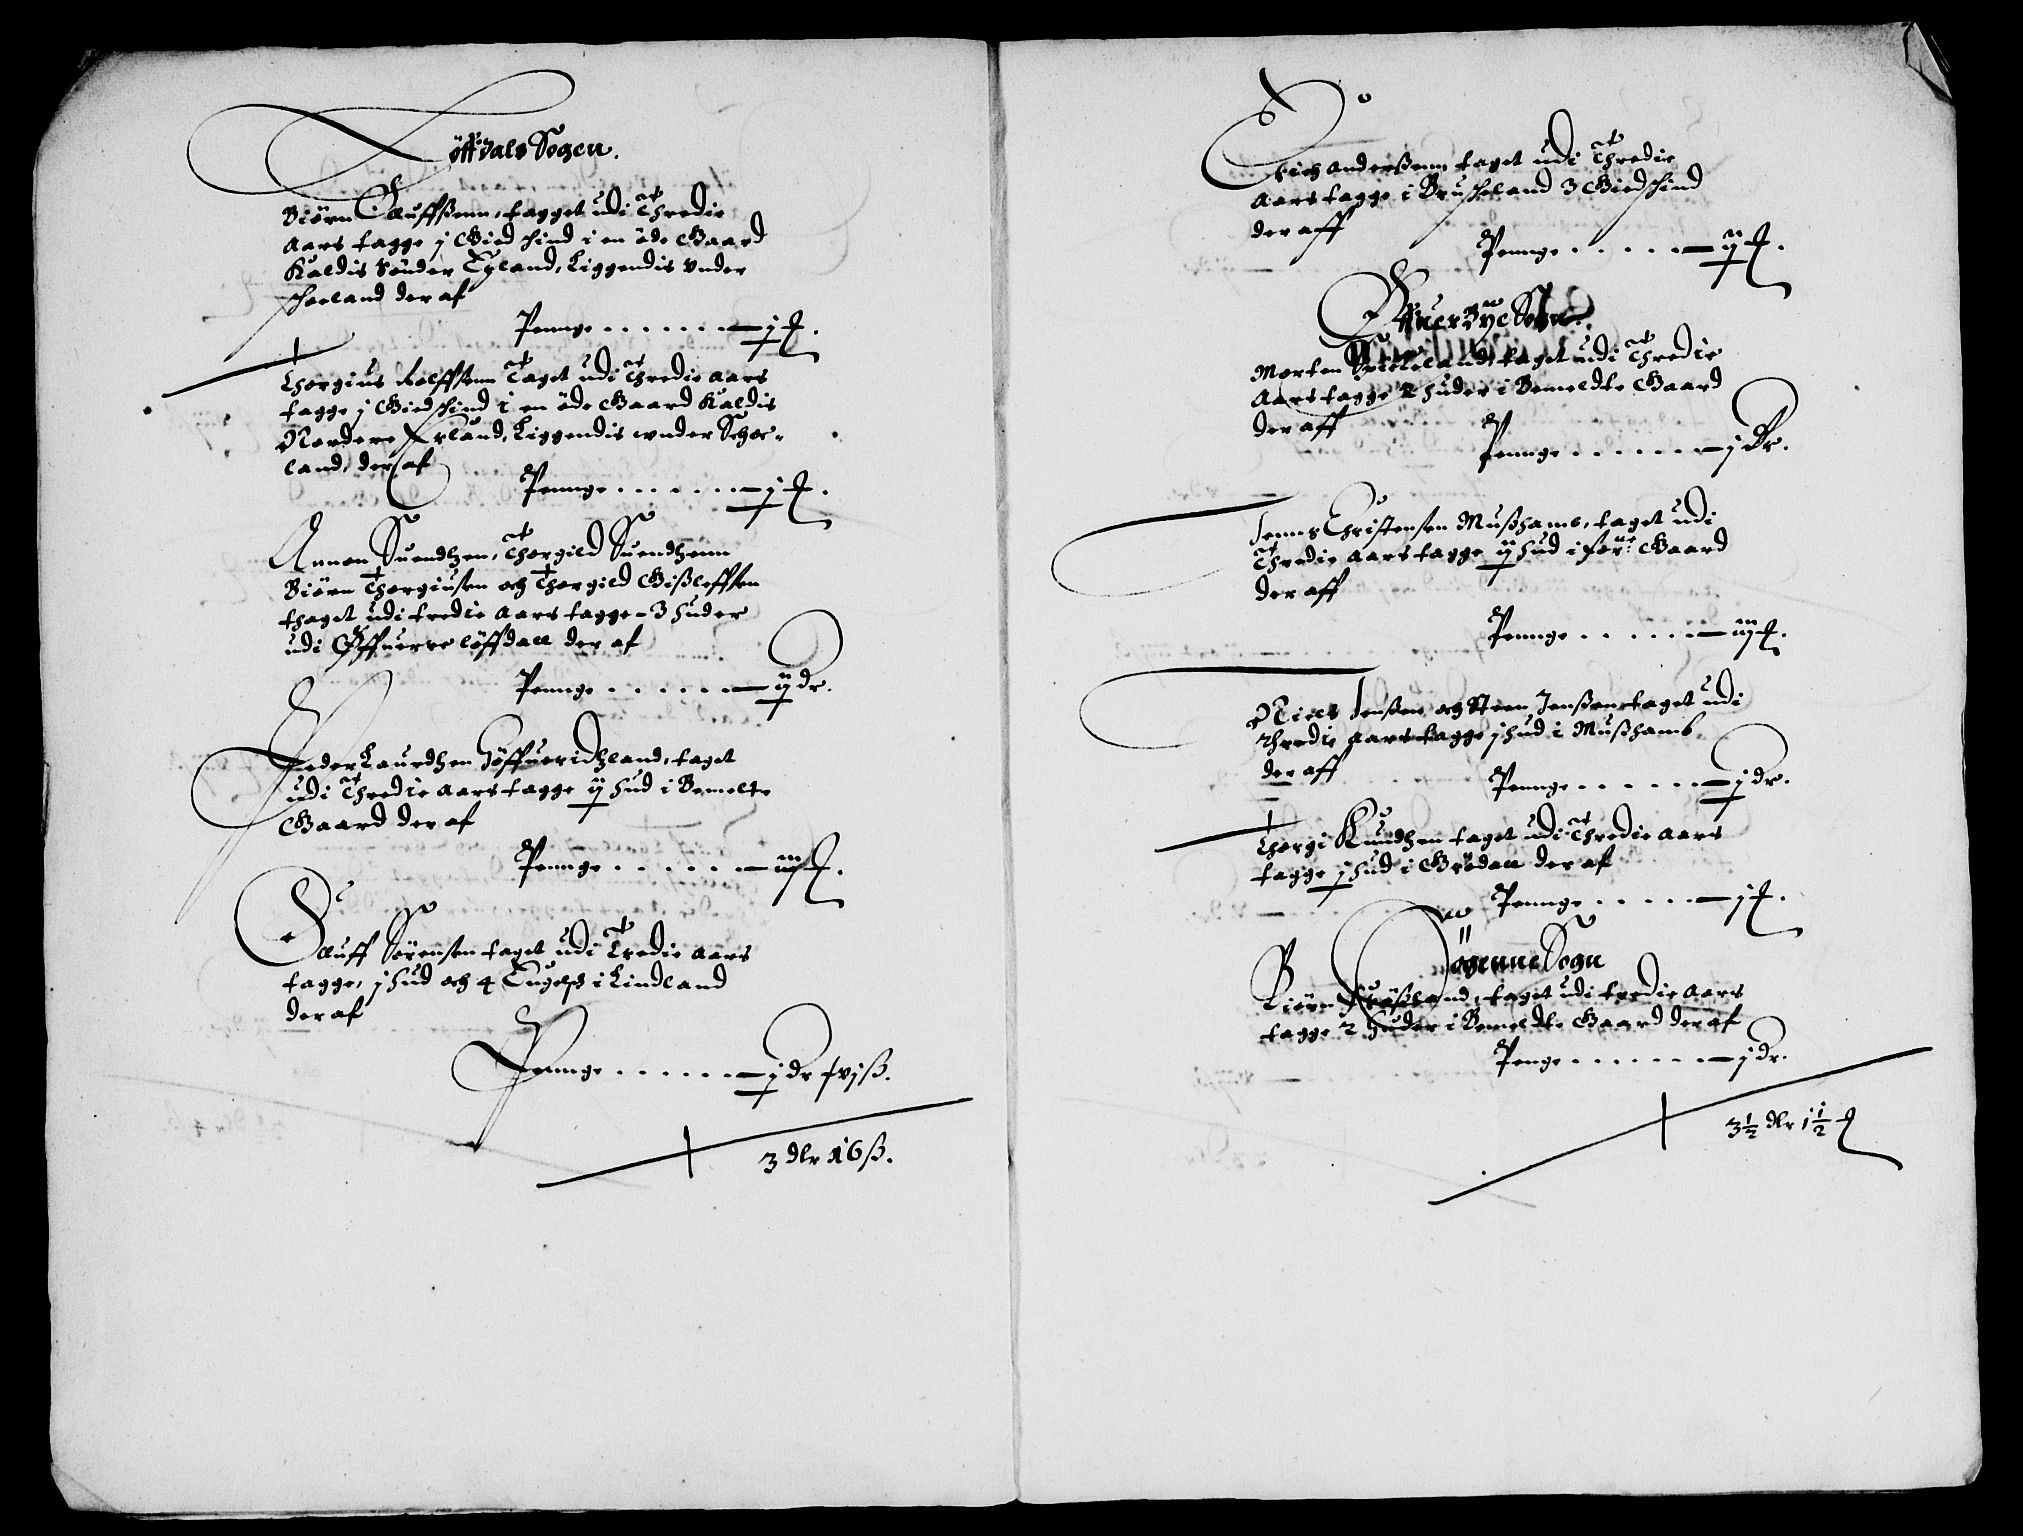 Löffdals Sogen.
Biörn Oluffßenn, tagget udi Thredie
Aars tagge j Giedschind i en öde Gaard
Kaldis Sönder Eyland, Liggendis Vnder
schoeland der af
Pennge . . . . . . . j ₰.
Thorgius Rolffßenn Taget udi Thredie Aars
tagge j Giedschind i en öde Gaard Kaldis
Nordere Erland, Liggendis wnder Schoe-
land, der af
Pennge . . . . . . j ₰.
Annon Suendhen, Thorgild Suendhenn
Biörn Thorgiusen och Thorgild Gißleffsen
thaget udi tredie Aars tagge - 3 huder
udi Öffuerre löffdall der af
Pennge . . . . . . ij dr.
Peder Laurdhen Höffueridhland, taget
udi Thredie Aars tagge ij hud i Bemelte
Gaard der af
Pennge . . . . . . iij ₰.
Oluff Sörensen taget udi Tredie Aars
tagge, j hud och 4 Engelß i Lindland
der af
Pennge . . . . . . j dr xvj ß.
3 dlr 16 ß.
Erich Anderßenn taget udi Thredie
Aars tagge i Bruscheland 3 Giedschind
der aff
Pennge . . . . . ij ₰.
Öffuerbye Sogn.
Morten taget udi Thredie
Aars tagge 2 huder i Bemeldte Gaard
der aff
Pennge . . . . . . j Dr.
Jenns Christensen Mußhamb, taget udi
Thredie Aars tagge ij hud i for:ne Gaard
der aff
Pennge . . . . . . iij ₰.
Niels Jenßen och Steen Jenßen taget udi
Thredie Aars tagge j hud i Mußhamb
der aff
Pennge . . . . . . j dr.
Thorgi Knudhen taget udi Thredie Aars
tagge j hud i Grödall der af
Pennge . . . . . j ₰.
Högenne Sogn
Biörn taget udi tredie Aars
tagge 2 Huder i Bemeldte Gaard der af
Penge . . . . . . . j dr.
3½ dlr 1½ ₰